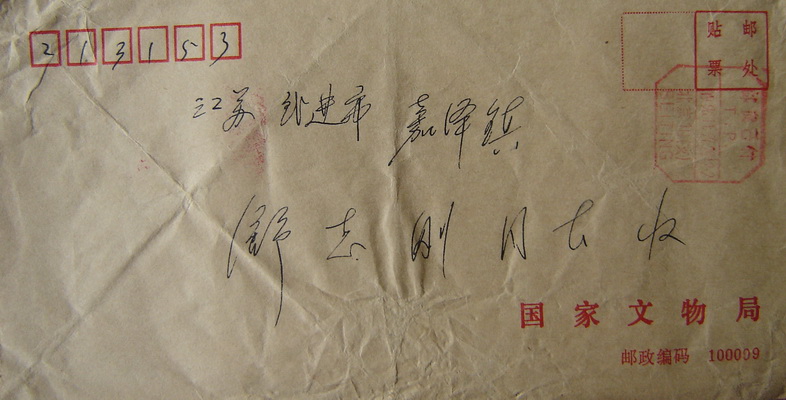 213153
贴 邮
票 处
江苏 武进市 嘉泽镇
舒志刚 同志 收
国家文物局
邮政编码 100009